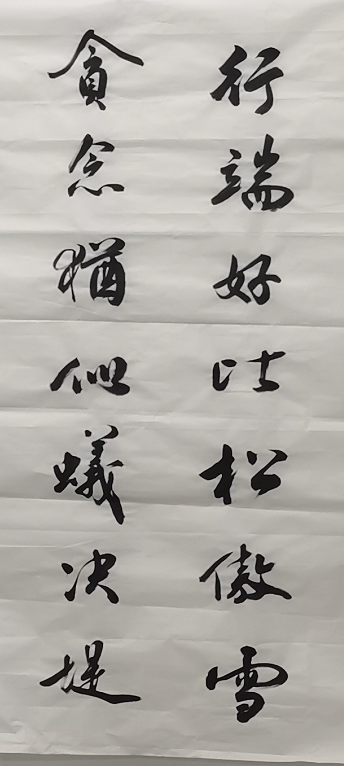 行端好比松傲雪
貪念猶似蟻決堤